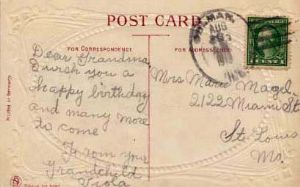 POST CARD
FOR CORRESPONDENCE
FOR ADDRESS ONLY
Dear Grandma,
I wish you a
happy birthday
and many more
to come
From your
Grandchild
Viola
Mrs Marie Magel
2122 Miami St
St. Louis
Mo.
AUG
Printed in Germany